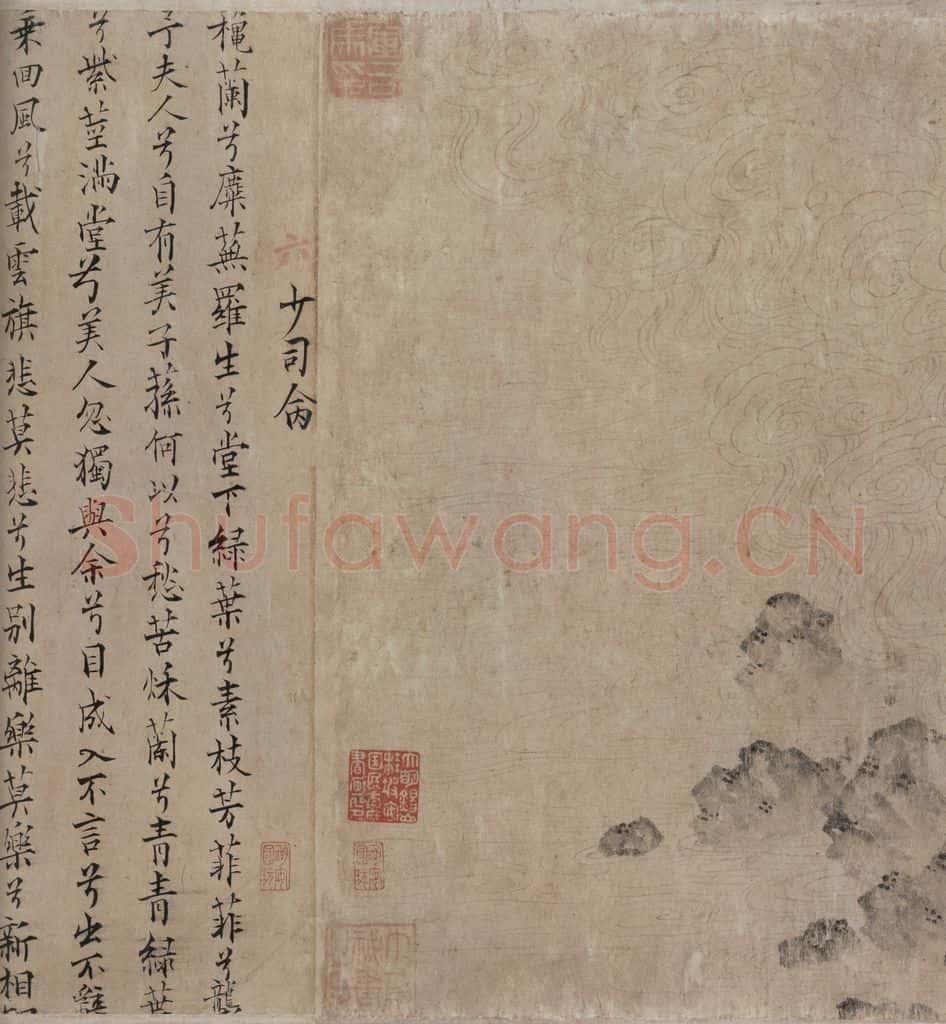 大明錫山桂坡安國民泰氏書畫印
六
少司命
穐蘭兮麋蕪羅生兮堂下緑葉兮素枝芳菲菲兮襲
予夫人兮自有美子蓀何以兮愁苦秌蘭兮青青緑葉
兮紫莖滿堂兮美人忽獨與余兮目成入不言兮出不辭
乗回風兮載雲旗悲莫悲兮生别離樂莫樂兮新相
Shufawang.CN